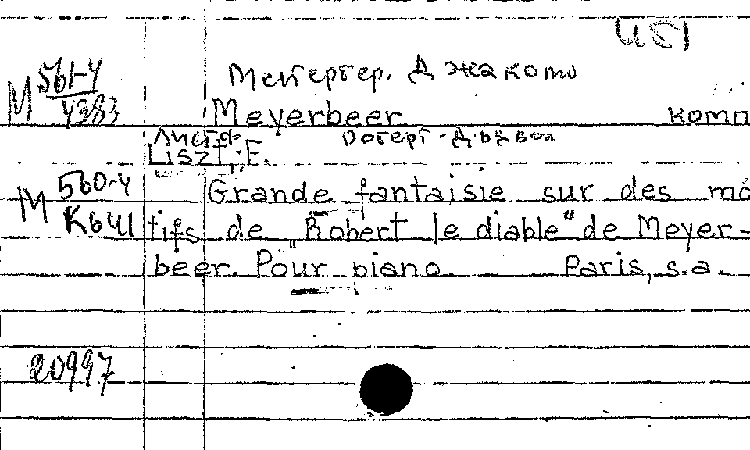 Мейербер. Джакомо
М 561-4
4383
Meyerbeer комп
Лист Ф.
Роберт-Дьявол
Liszt, F.
М 560-4
К641
Grande fantaisie sur des mo
tifs de „Robert le diable“ de Meyer-
beer. Pour piano Paris, s.a.
20997